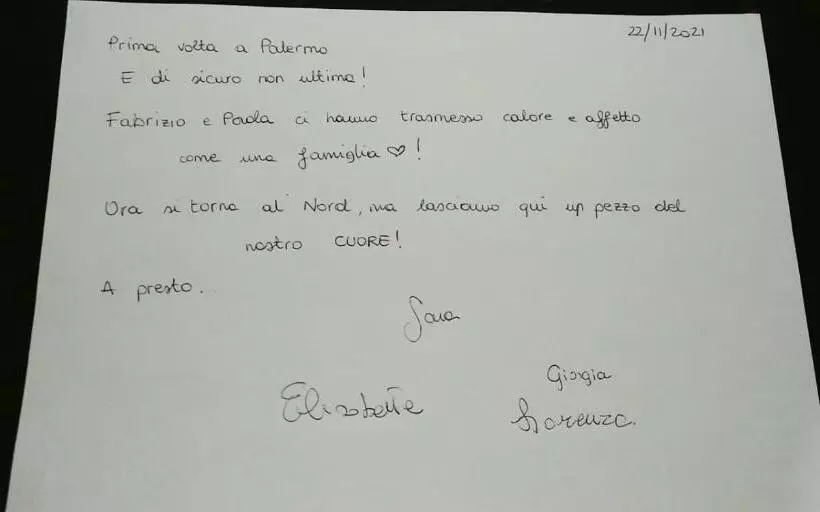 22/11/2021
Prima volta a Palermo
E di sicuro non ultima!
Fabrizio e Paola ci hanno trasmesso calore e affetto
come una famiglia ♡!
Ora si torna al Nord, ma lasciamo qui un pezzo del
nostro CUORE!
A presto.
Sara
Giorgia
Elisabetta
Lorenzo.